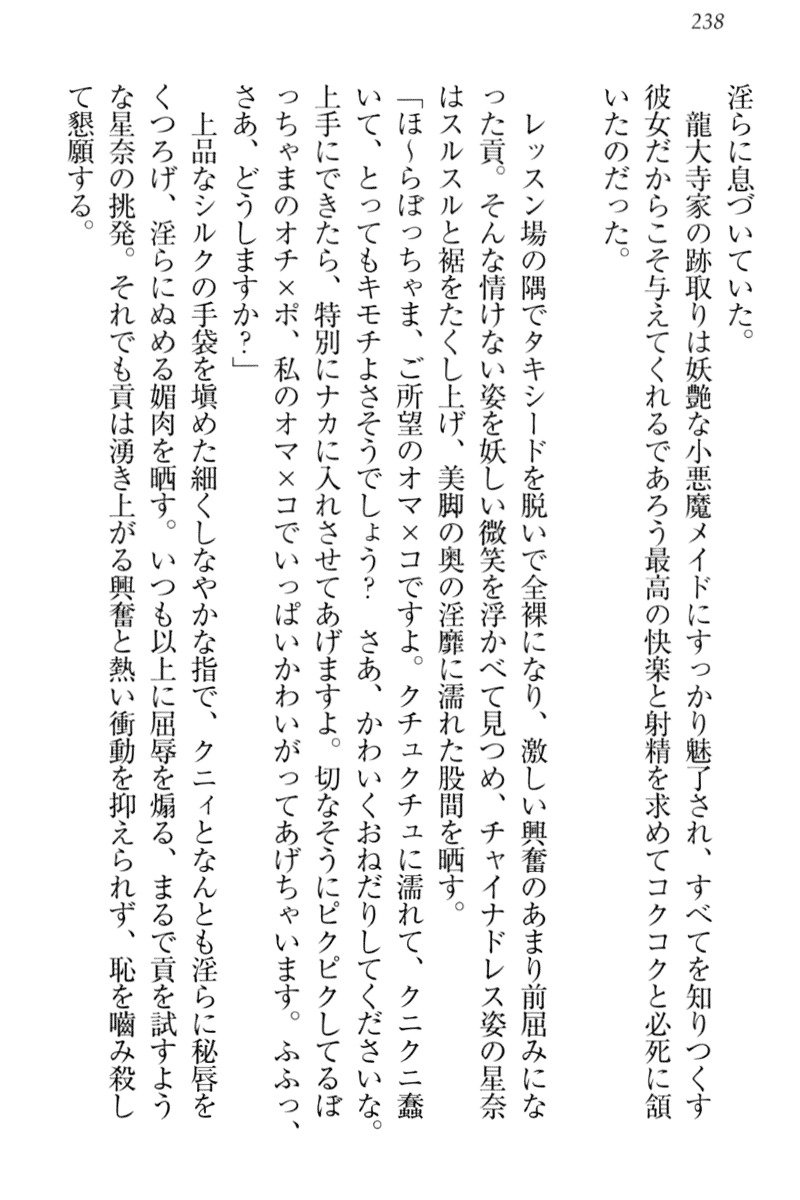 238
淫らに息づいていた。
龍大寺家の跡取りは妖艶な小悪魔メイドにすっかり魅了され、すべてを知りつくす
彼女だからこそ与えてくれるであろう最高の快楽と射精を求めてコクコクと必死に頷
いたのだった。
レッスン場の隅でタキシードを脱いで全裸になり、激しい興奮のあまり前屈みにな
った貢。そんな情けない姿を妖しい微笑を浮かべて見つめ、チャイナドレス姿の星奈
はスルスルと裾をたくし上げ、美脚の奥の淫靡に濡れた股間を晒す。
「ほ〜らぼっちゃま、ご所望のオマ×コですよ。クチュクチュに濡れて、クニクニ蠢
いて、とってもキモチよさそうでしょう？　さあ、かわいくおねだりしてくださいな。
上手にできたら、特別にナカに入れさせてあげますよ。切なそうにピクピクしてるぼ
っちゃまのオチ×ポ、私のオマ×コでいっぱいかわいがってあげちゃいます。ふふっ、
さあ、どうしますか？」
上品なシルクの手袋を塡めた細くしなやかな指で、クニィとなんとも淫らに秘唇を
くつろげ、淫らにぬめる媚肉を晒す。いつも以上に屈辱を煽る、まるで貢を試すよう
な星奈の挑発。それでも貢は湧き上がる興奮と熱い衝動を抑えられず、恥を嚙み殺し
て懇願する。